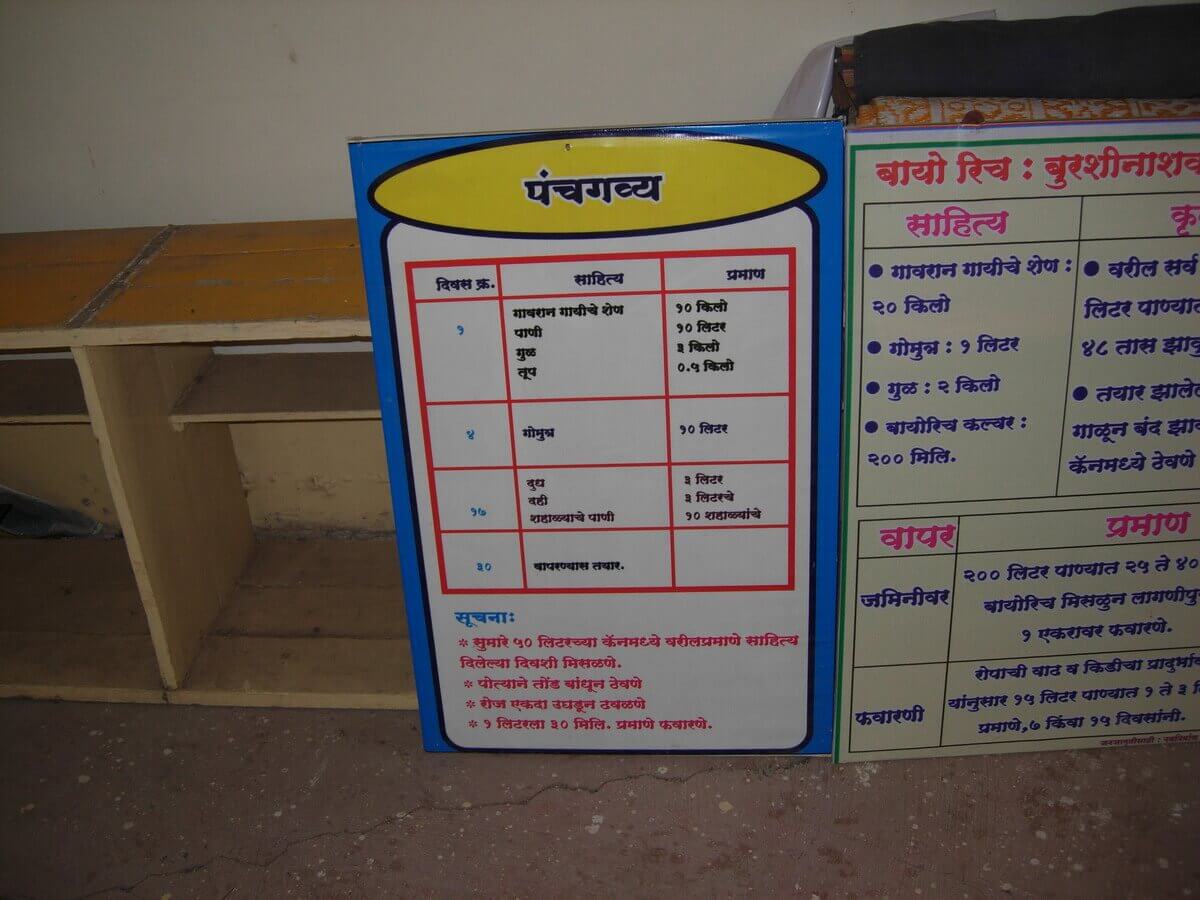 पंचगव्य
दिवस क्र. साहित्य प्रमाण
१ गावरान गायीचे शेण १० किलो
पाणी १० लिटर
गुळ ३ किलो
तूप ०.५ किलो
४ गोमुत्र १० लिटर
१७ दुध ३ लिटर
दही ३ लिटरचे
शहाळ्याचे पाणी १० शहाळ्यांचे
३० वापरण्यास तयार.
सूचनाः
* सुमारे ५० लिटरच्या कॅनमध्ये वरीलप्रमाणे साहित्य
दिलेल्या दिवशी मिसळणे.
* पोत्याने तोंड बांधून ठेवणे
* रोज एकदा उघडून ढवळणे
* १ लिटरला ३० मिलि. प्रमाणे फवारणे.
बायो रिच : बुरशीनाशक
साहित्य कृ
• गावरान गायीचे शेण :
२० किलो
• गोमुत्र : १ लिटर
• गुळ : २ किलो
• बायोरिच कल्चर :
२०० मिलि.
• वरील सर्व
लिटर पाण्यात
४८ तास झाकू
• तयार झालेल
गाळून बंद झाक
कॅनमध्ये ठेवणे
वापर प्रमाण
जमिनीवर २०० लिटर पाण्यात २५ ते ४०
बायोरिच मिसळुन लागणीपु
१ एकरावर फवारणे.
फवारणी रोपाची वाढ व किडीचा प्रादुर्भाव
यांनुसार १५ लिटर पाण्यात १ ते ३ लि
प्रमाणे,७ किंवा १५ दिवसांनी.